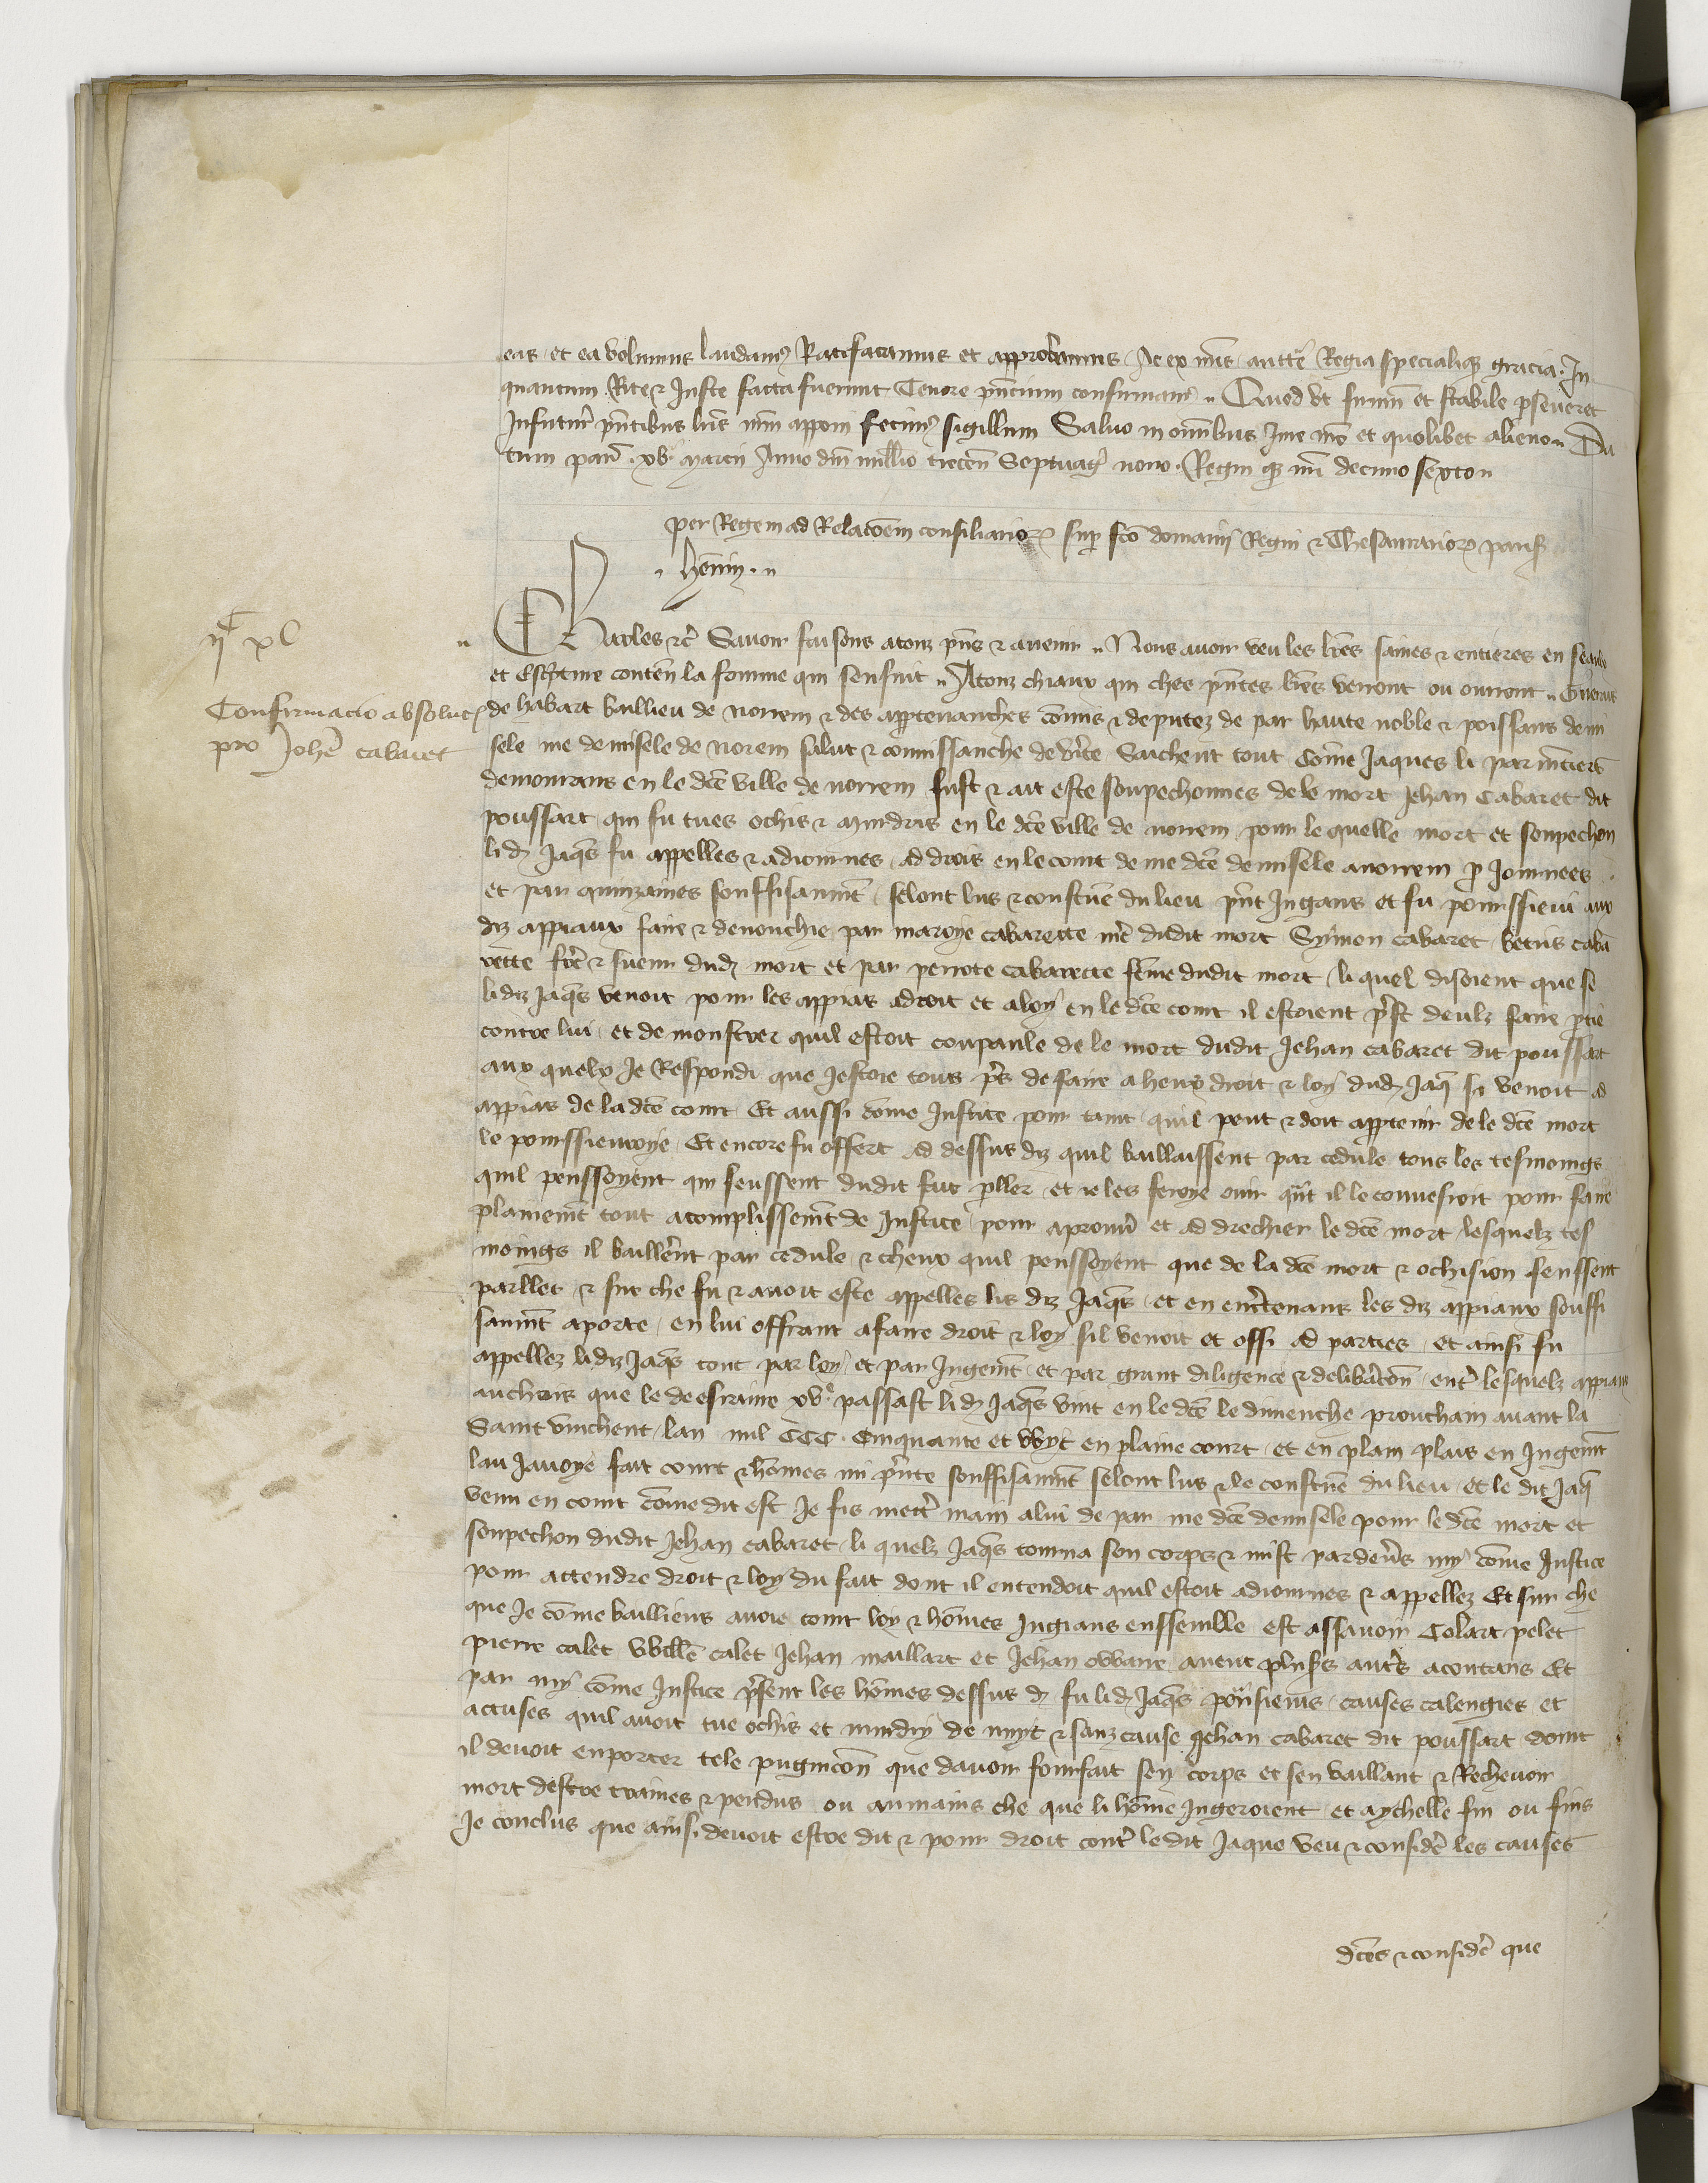 eas et ea volumus laudamꝯ Ratificamus et approbamus Ac ex nris auctte Regia specialiqꝫ gracia. In
quantum Rite & Juste facta fuerunt Tenore pñtium confirmamꝯ Quod ut firmū et stabile pseueret
Infuturū pñtibus lris nrm apponi fecimꝯ sigillum Saluo in omībus Jure nro et quolibet alieno Da
tum parꝰ xvᵃ marcij Anno dm̄ millio trecen̄ Septuagꝰ nono. Regni qꝫ nrī decimo sexto
per Regem ad Relacōem consiliarioꝝ sup fco domanij Regni & Thesaurarioꝝ parisꝰ
henin.
ijᶜ xl
Charles &cꝰ Sauoir faisons atouz pns & auenir Nous auoir veu les lres saines & entieres en seaulx
et escripture conten̄ la fourme qui sensuit Atouz chiaux qui ches pñtes lres verront ou orront
Confirmacio absolucꝰ
pro Johē cabaret
de habart baillieu de norrem & des apptenanches cōmis & deputez de par haute noble & poissans demi
sele me demisele de norem salut & connissanche de vrite Sachent tout cōme Jaques li parmētiers
demourans en le dcē ville de norrem fust & ait este soupechonnes de le mort Jehan Cabaret dit
poussart qui fu tues ochis & murdris en le dcē ville de norrem pour le quelle mort et soupechon
li dꝰ Jaqꝫ fu appelles & adiournes ad drois en le court de me dcē demisele anorrem p Journees
et par quinzaines souffisaumt selont lus & coustūe du lieu pñt Jugans et fu poursieui aux
dis appiaux faire & denonchie par maroye cabarette mē dudit mort Symon cabaret betris caba
rette frē & suer dudꝰ mort et par perrote cabarette fēme dudit mort li quel disoient que se
lidiz Jaqꝫ venoit pour les appiaus adroit et aloy en le dcē court il estoient prest deulz faire ptie
contre lui et de monstrer quil estoit coupaule de le mort dudit Jehan cabaret dit poussart
aux quelx Je Respondi que Jestoie tous prs de faire a heux droit & loy dudꝰ Jaqꝫ si venoit ad
appiaus de la dcē court Et aussi cōme Justice pour tant quil peut & doit apptenir de le dcē mort
le poursieuroye Et encore fu offert ad dessus diz quil baillaissent par cedule tous les tesmoings
quil penssoyent qui seussent dudit fait pller et ie les feroye ouir qūt il le conuesroit pour faire
plainemt tout acomplissemt de Justice pour aprouuer et ad drechier le dcē mort lesquelz tes
moings il baillerent par cedule & cheux quil penssoyent que de la dcē mort & ochision seussent
parller & sur che fu & auoit este appelles lis diz Jaqꝫ et en entretenans les diz appiaux souffi
saumt aporte en lui offrant afaire droit & loy sil venoit et ossi ad parties et ainsi fu
appellez lidiz Jaqꝫ tout par loy et par Jugemt et par grant diligence & delibacōn entꝰ lesquelz appiaux
anchois que le desrraine xvᵉ passast li dꝰ Jaqꝫ vint en le dcē le dimenche prouchain auant la
Saint vinchent lan mil CCC. Cinquante et wyt en plaine court et en plain plais en Jugemt
lau Jauoye fait court & hōmes mi pñte souffisaumt selont lus & le coustūe du lieu et le dit Jaqꝫ
venu en court cōme dit est Je fis mettꝰ main alui de par me dcē demisele pour le dcē mort et
soupechon dudit Jehan cabaret li quelz Jaqꝫ tourna son corps & mist pardeuers my cōme Justice
pour attendre droit & loy du fait dont il entendoit quil estoit adiournes & appellez Et sur che
que Je cōme baillieus auoie court loy & hōmes Jugans enssemble est assauoir Colart pelet
pierre calet Willē calet Jehan maillart et Jehan owarre auent plusrs autrs acontans Et
par my cōme Justice psent les hōmes dessus dꝰ fu li dꝰ Jaqꝫ poursieuis causes calengies et
accuses quil auoit tue ochis et murdry de nuyt & sanz cause Jehan cabaret dit poussart dont
il deuoit enporter tele pugnicōn que dauoir fourfait sen corps et sen vaillant & Recheuoir
mort destre traines & pendus ou aumains che que li hōme Jugeroient et aychelle fin ou fins
Je conclus que ainsi deuoit estre dit & pour droit contꝰ ledit Jaque veu & considꝰ les causes
dcēs & considꝰ que